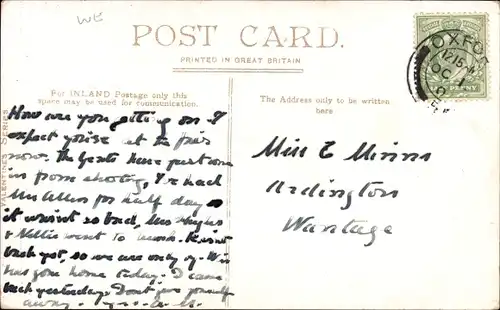 WE
POST CARD.
PRINTED IN GREAT BRITAIN
For INLAND Postage only this
space may be used for communication.
The Address only to be written
here
VALENTINE'S SERIES
OXFO
12 15
OC
PENNY
How are you getting on I
expect you're at the
now. The Gents have just come
in from shooting, I've had
Mrs Allen for half day so
it wasn't so bad, Mrs
& Nellie went to
back yet, so we are only
has gone home today. I came
back yesterday. Don't give yourself
away.
Miss E Minns
Ardington
Wantage